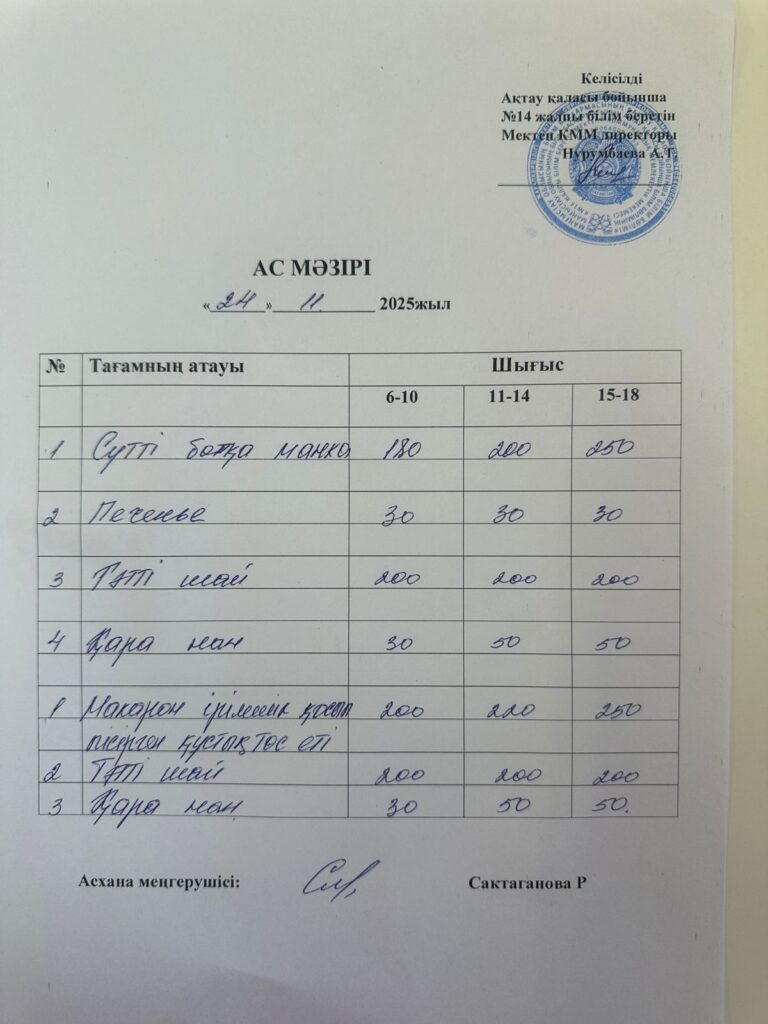 Келісілді
Ақтау қаласы бойынша
№14 жалпы білім беретін
Мектеп КММ директоры
Нурумбаева А.Т
АС МӘЗІРІ
«24» 11. 2025жыл
№ Тағамның атауы Шығыс
6-10 11-14 15-18
1 Сүтті ботқа манка 180 200 250
2 Печенье 30 30 30
3 Тәтті шай 200 200 200
4 Қара нан 30 50 50
1 Макарон ірімшік қосып 200 220 250
пісірген құстың төс еті
2 Тәтті шай 200 200 200
3 Қара нан 30 50 50.
Асхана меңгерушісі: Сактаганова Р